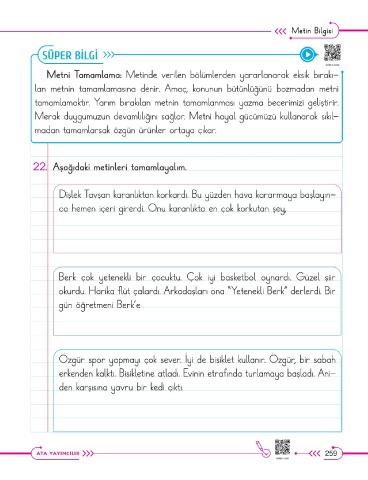 Metin Bilgisi
SÜPER BİLGİ
Metni Tamamlama: Metinde verilen bölümlerden yararlanarak eksik bırakı-
lan metnin tamamlamasına denir. Amaç, konunun bütünlüğünü bozmadan metni
tamamlamaktır. Yarım bırakılan metnin tamamlanması yazma becerimizi geliştirir.
Merak duygumuzun devamlılığını sağlar. Metni hayal gücümüzü kullanarak sıkıl-
madan tamamlarsak özgün ürünler ortaya çıkar.
22. Aşağıdaki metinleri tamamlayalım.
Dişlek Tavşan karanlıktan korkardı. Bu yüzden hava kararmaya başlayın-
ca hemen içeri girerdi. Onu karanlıkta en çok korkutan şey,
Berk çok yetenekli bir çocuktu. Çok iyi basketbol oynardı. Güzel şiir
okurdu. Harika flüt çalardı. Arkadaşları ona "Yetenekli Berk" derlerdi. Bir
gün öğretmeni Berk'e
Özgür spor yapmayı çok sever. İyi de bisiklet kullanır. Özgür, bir sabah
erkenden kalktı. Bisikletine atladı. Evinin etrafında turlamaya başladı. Ani-
den karşısına yavru bir kedi çıktı.
ATA YAYINCILIK
259